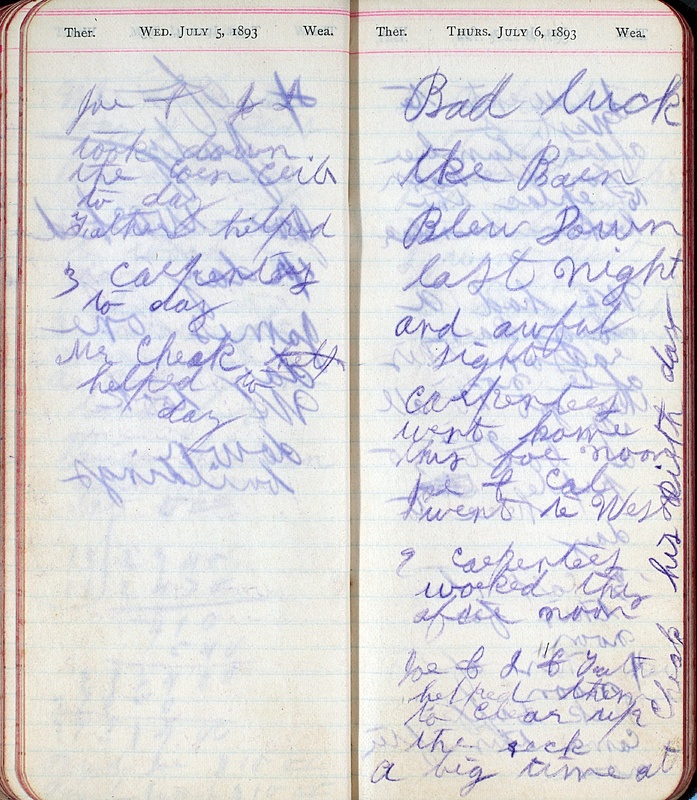 Ther. WED. JULY 5, 1893 Wea.
Joe
took down
the Coen Ceib
to day
Father helped
3 Carpenters
to day
Mr Cheak help
helped to
day
Ther. THURS. JULY 6, 1893 Wea.
Bad luck
the Baen
Blew Down
last night
and awful
sight
carpentees
went home
this foe noon
Joe & Cal
went to Wes
2 carpentees
worked this
after noon
Joe &
helped them
to clear up
the rack
a big time at
Cheak his eigth day